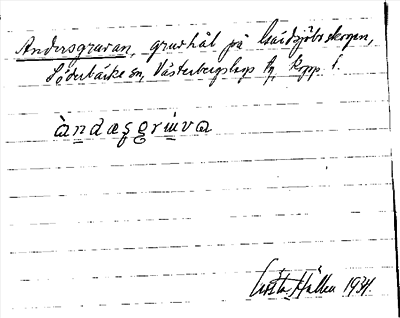 Andersgruvan, gruvhål på skogen,
Söderbärke sn, Västerbergslags tg, Kopp. l.
àndæsgrùva
Gösta Hallén 1934.